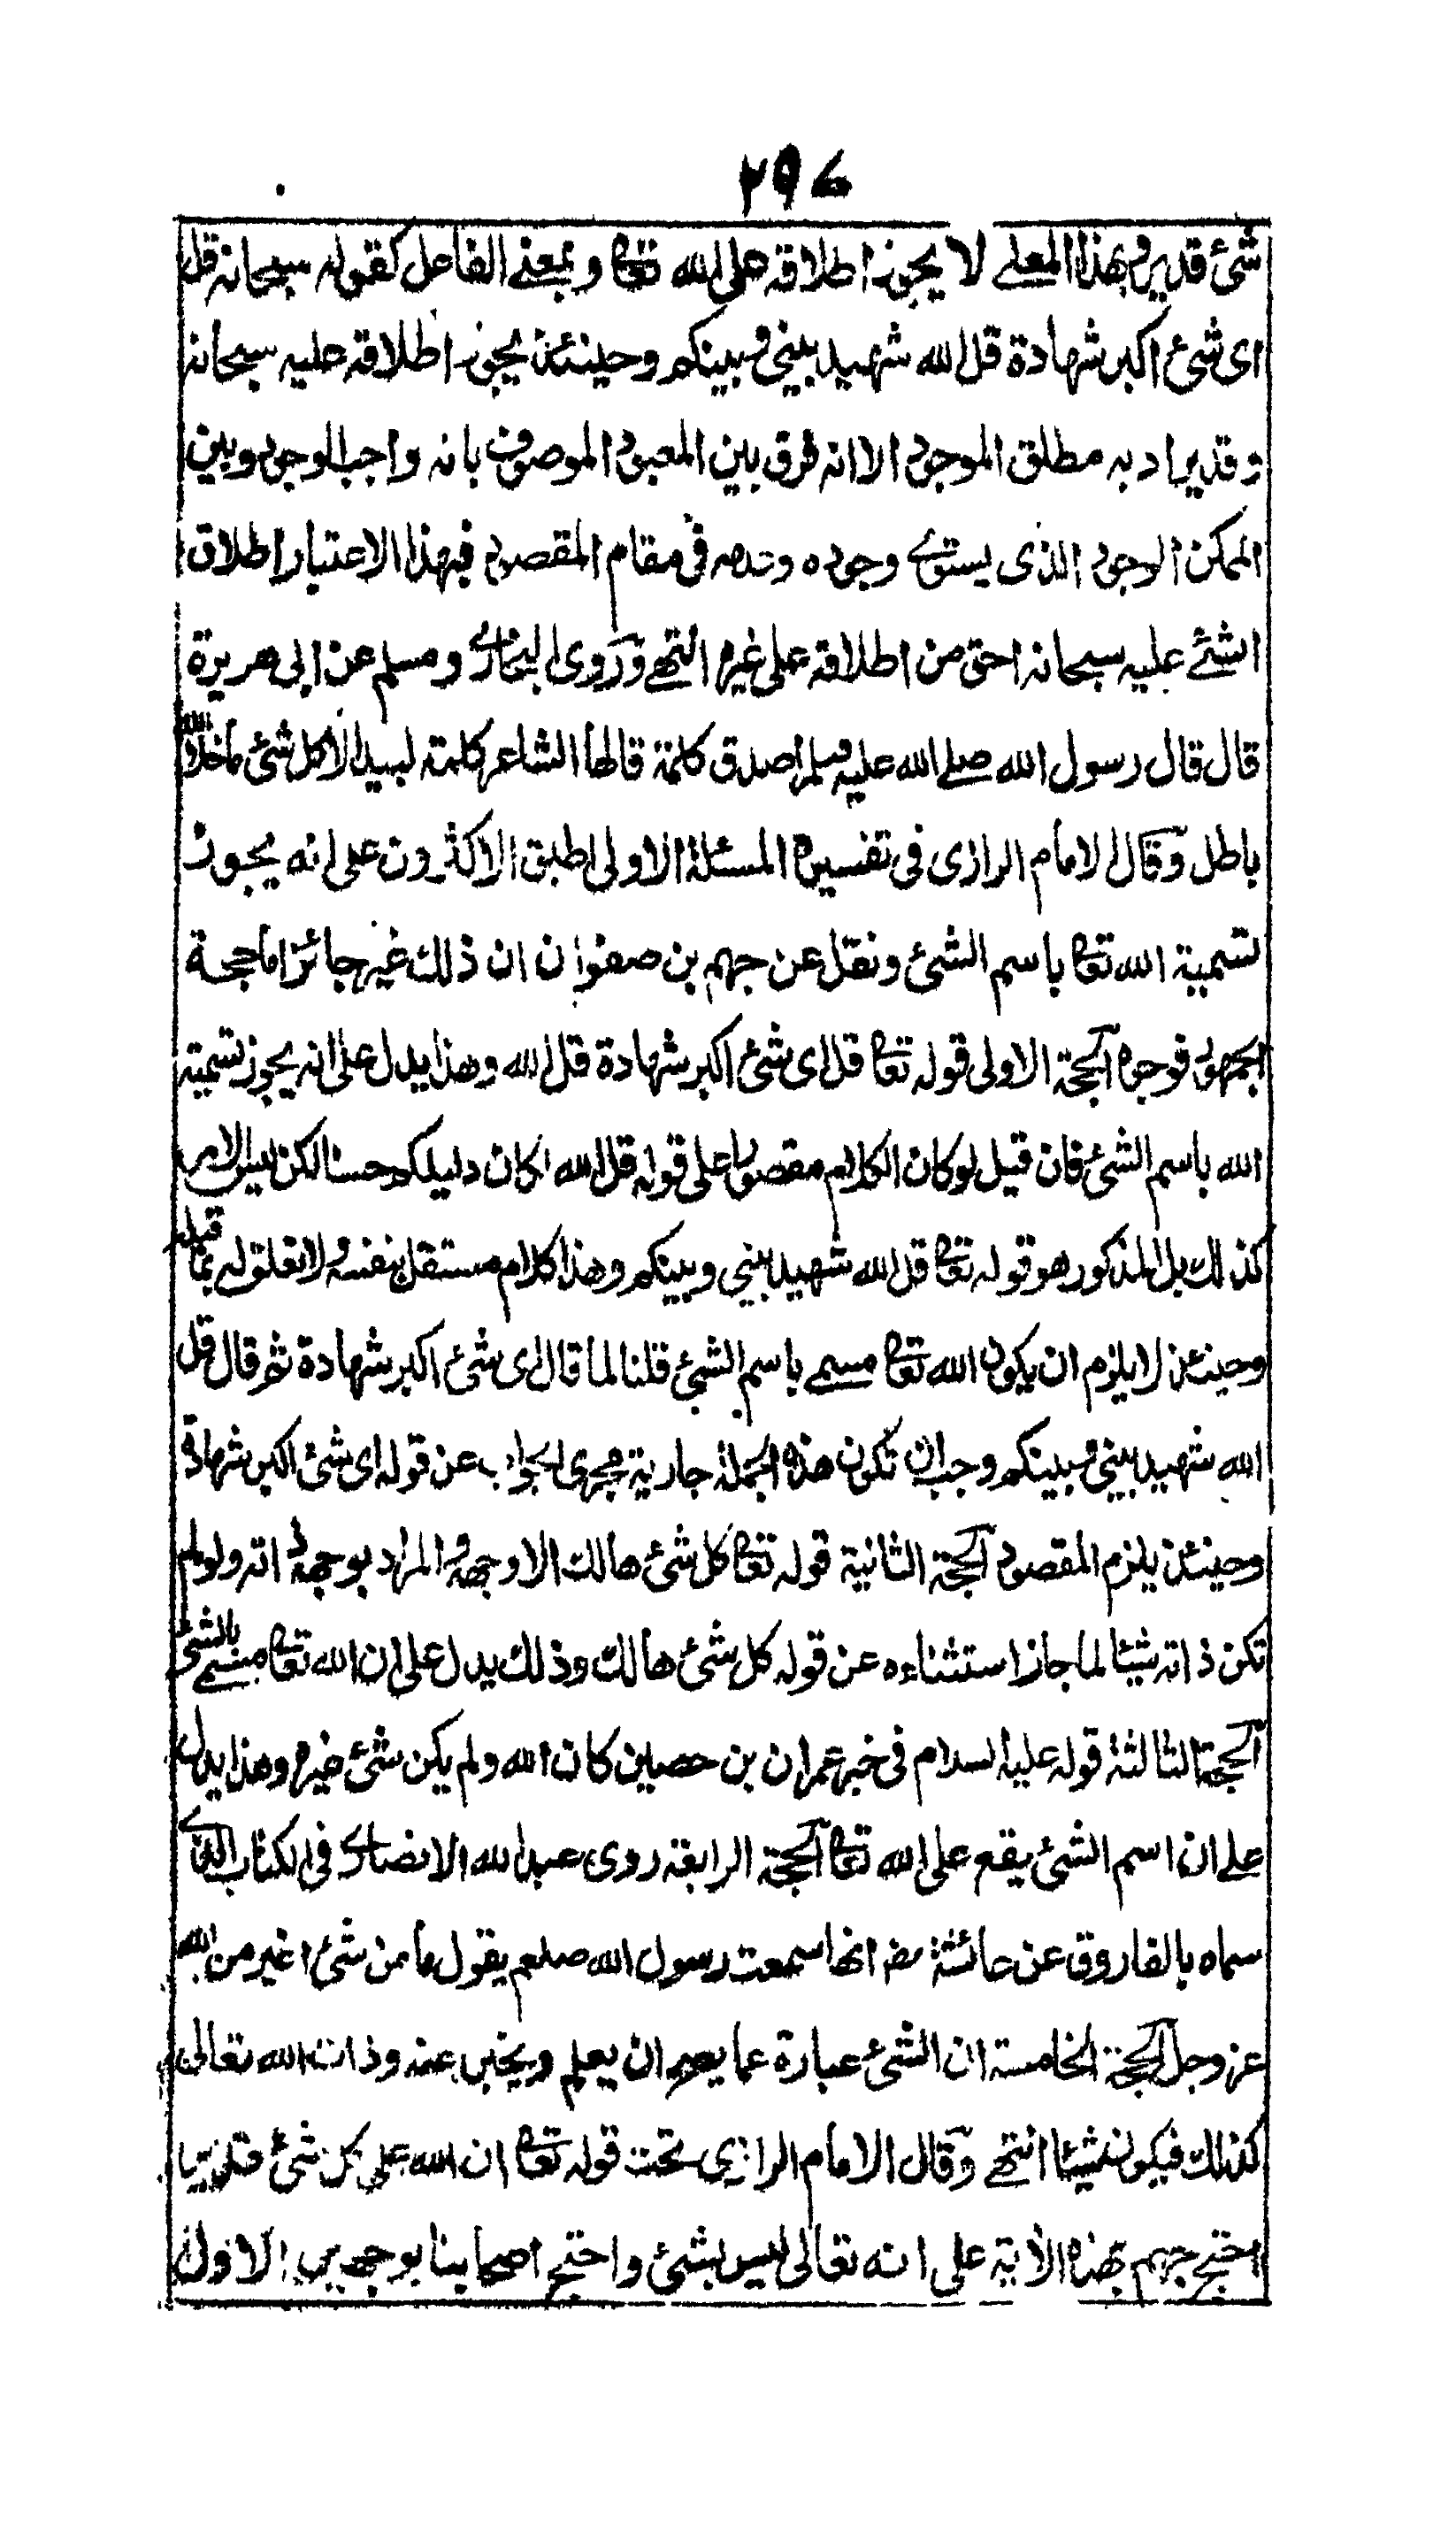 ٢٩٦
شئ قدير وبهذا المعنے لا يجوز اطلاقه على الله تعالى وبمعنے الفاعل كقوله سبحانه قل
اى شئ اكبر شهادة قل الله شهيد بيني وبينكم وحينئذ يجوز اطلاقه عليه سبحانه
وقد يراد به مطلق الموجود الا انه فرق بين المعبود الموصوف بانه واجب الوجود وبين
الممكن الوجود الذى يستوے وجوده وعدمه فى مقام المقصود فبهذا الاعتبار اطلاق
الشئے عليه سبحانه احق من اطلاقه على غيره انتهے وروى البخارے ومسلم عن ابى هريرة
قال قال رسول الله صلے الله عليه وسلم اصدق كلمة قالها الشاعر كلمة لبيد الا كل شئ ما خلا الله
باطل وقال الامام الرازى فى تفسيره المسئلة الاولى اطبق الاكثرون على انه يجوز
تسمية الله تعالى باسم الشئ ونقل عن جهم بن صفوان ان ذلك غير جائز اما حجة
الجمهور فوجوه الحجة الاولى قوله تعالى قل اى شئ اكبر شهادة قل الله وهذا يدل على انه يجوز تسمية
الله باسم الشئ فان قيل لو كان الكلام مقصورا على قوله قل الله لكان دليلكم حسنا لكن ليس الامر
كذلك بل المذكور هو قوله تعالى قل الله شهيد بيني وبينكم وهذا كلام مستقل بنفسه ولا تعلق له بما قبله
وحينئذ لا يلزم ان يكون الله تعالى مسمے باسم الشئ قلنا لما قال اى شئ اكبر شهادة ثم قال قل
الله شهيد بيني وبينكم وجب ان تكون هذه الجملة جارية مجرى الجواب عن قوله اى شئ اكبر شهادة
وحينئذ يلزم المقصود الحجة الثانية قوله تعالى كل شئ هالك الا وجهه والمراد بوجهه ذاته ولو لم
تكن ذاته شيئا لما جاز استثناءه عن قوله كل شئ هالك وذلك يدل على ان الله تعالى مسمے بالشئ
الحجة الثالثة قوله عليه السلام فى خبر عمران بن حصين كان الله ولم يكن شئ غيره وهذا يدل
علے ان اسم الشئ يقع على الله تعالى الحجة الرابعة روى عبد الله الانصارے فى الكتاب الذے
سماه بالفاروق عن عائشة رضـ انها سمعت رسول الله صلعم يقول ما من شئ اغير من الله
عز وجل الحجة الخامسة ان الشئ عبارة عما يصح ان يعلم ويخبر عنه وذات الله تعالى
كذلك فيكون شيئا انتهے وقال الامام الرازى تحت قوله تعالى ان الله على كل شئ قدير
احتج جهم بهذه الآية على انه تعالى ليس بشئ واحتج اصحابنا بوجهين الاول